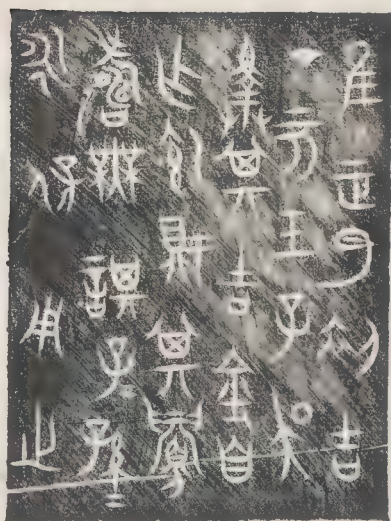 隹正月初吉
丁亥王子吳
擇其吉金自
乍飤鼾其眉
壽無諆子孫=
永保用之